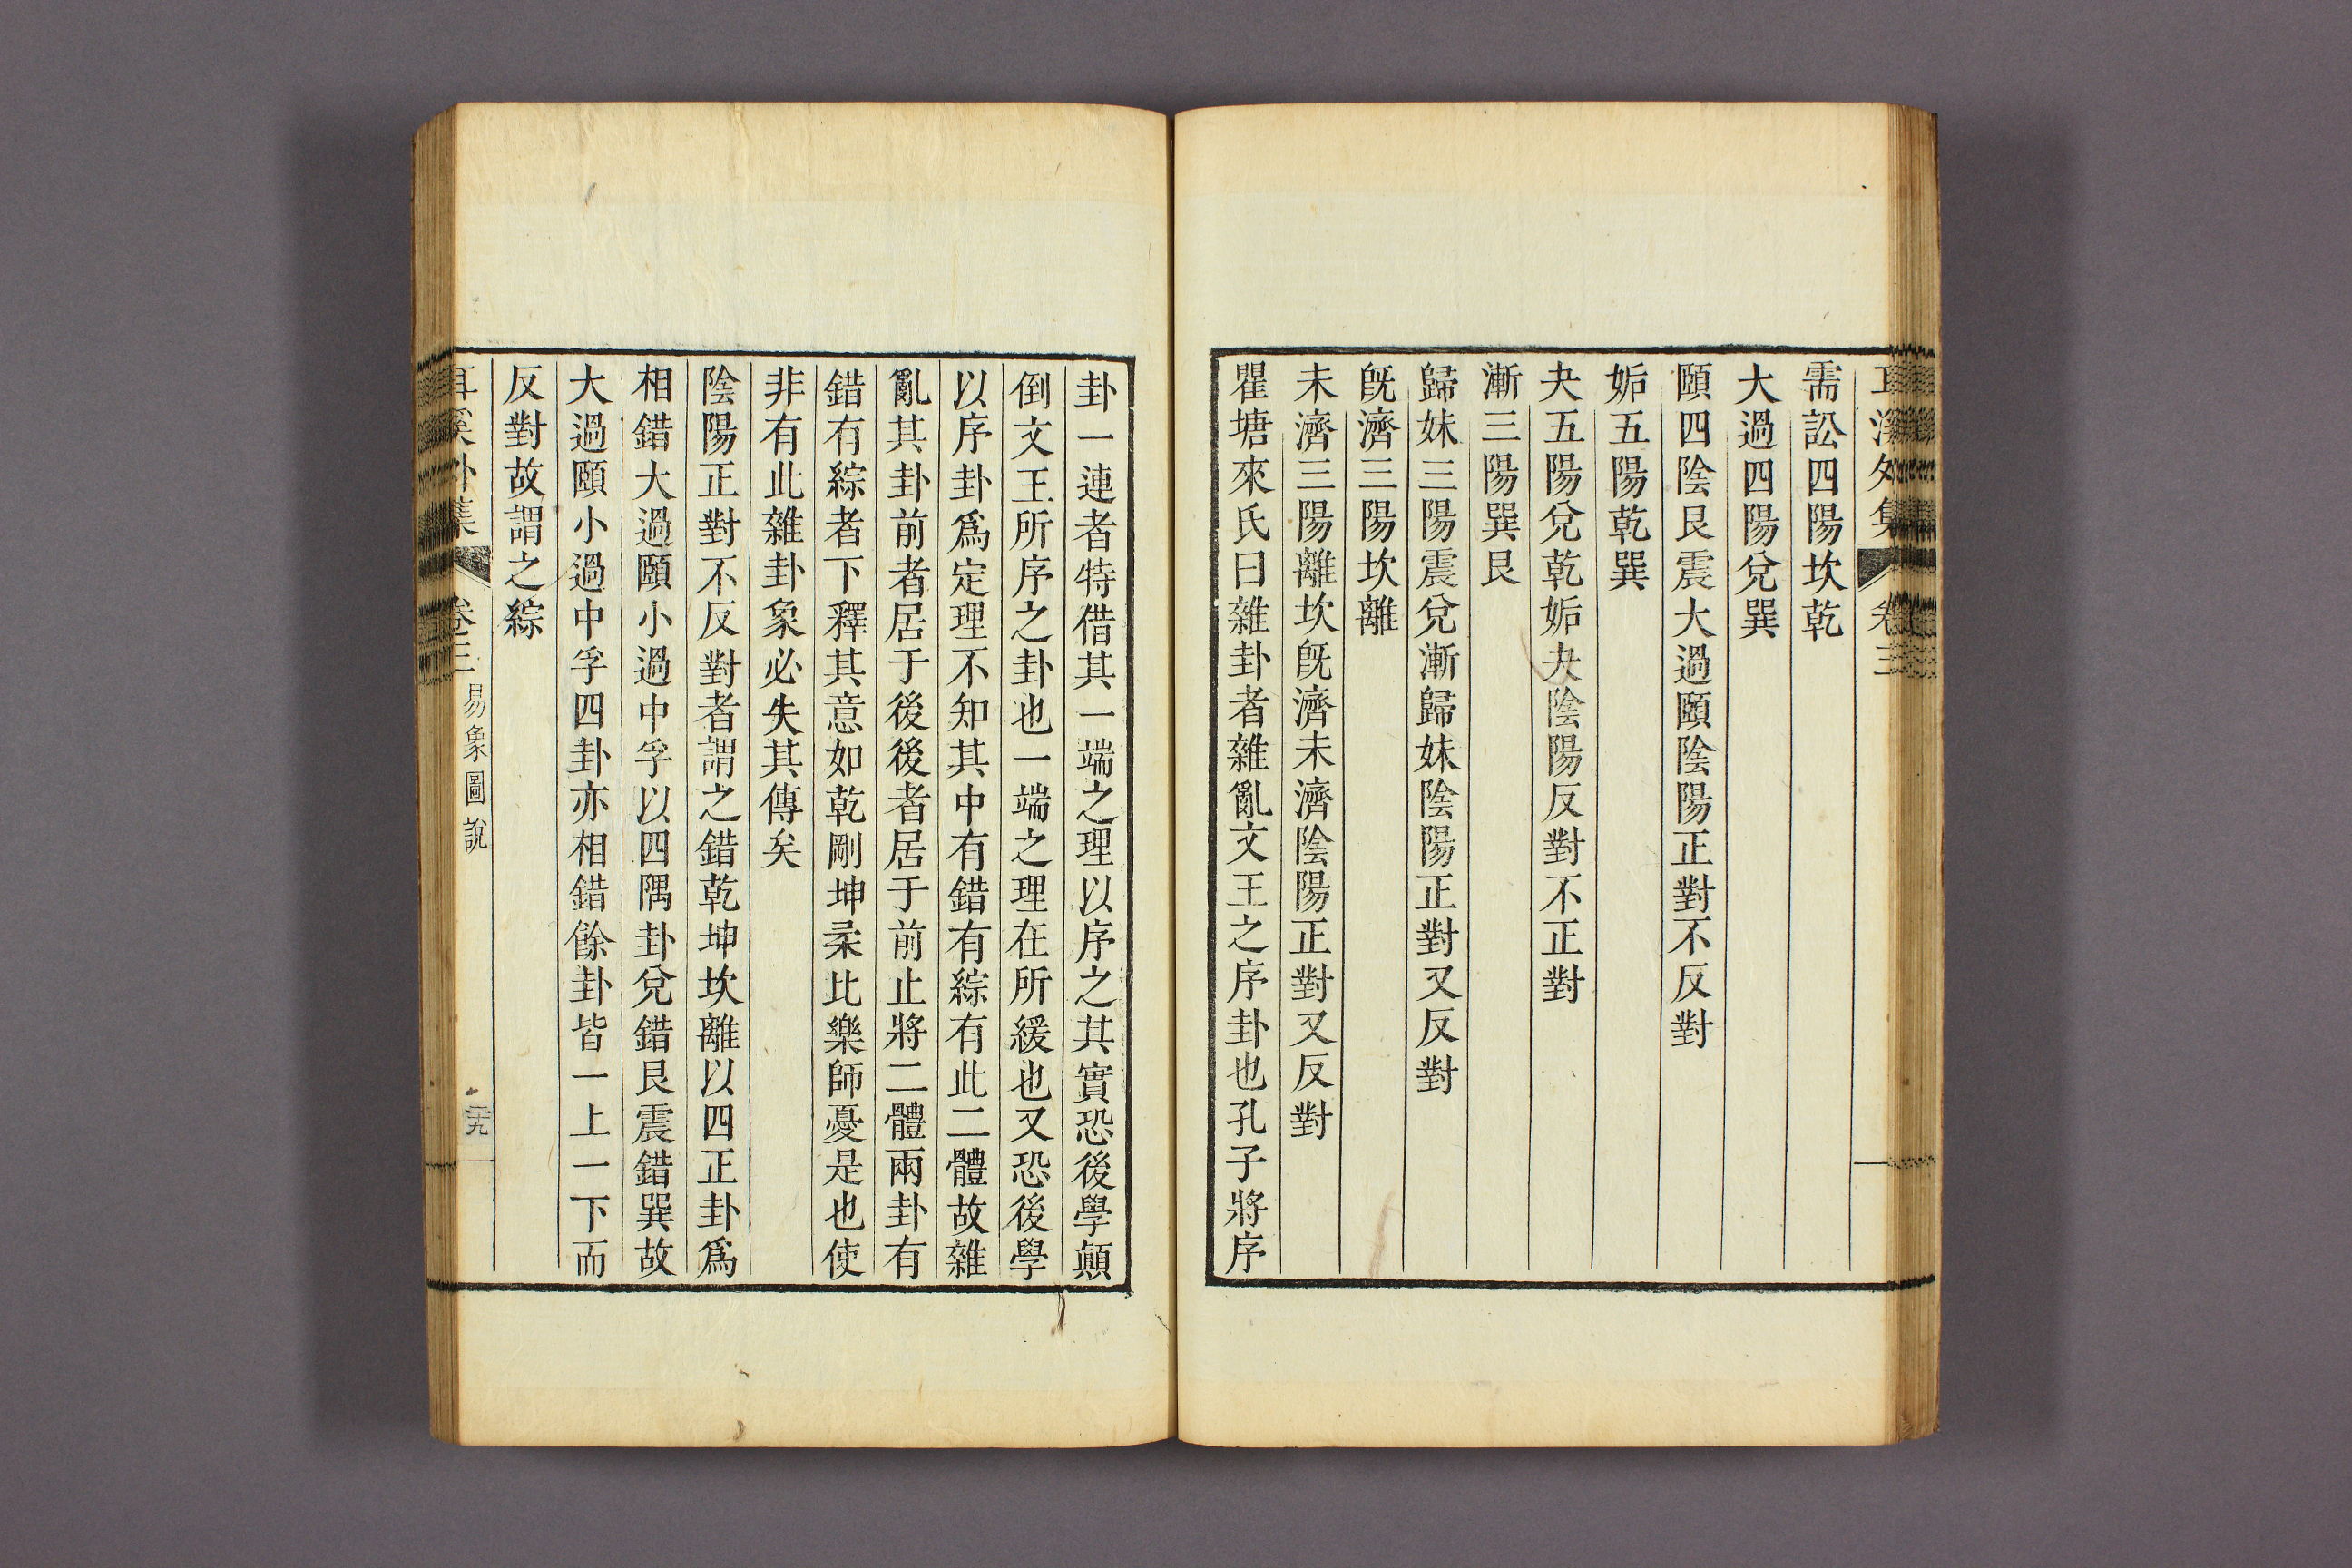 耳溪外集 卷三
需訟四陽坎乾
大過四陽兌巽
頤四陰艮震大過頤陰陽正對不反對
姤五陽乾巽
夬五陽兌乾姤夬陰陽反對不正對
漸三陽巽艮
歸妹三陽震兌漸歸妹陰陽正對又反對
旣濟三陽坎離
未濟三陽離坎旣濟未濟陰陽正對又反對
瞿塘來氏曰雜卦者雜亂文王之序卦也孔子將序
卦一連者特借其一端之理以序之其實恐後學顛
倒文王所序之卦也一端之理在所緩也又恐後學
以序卦爲定理不知其中有錯有綜有此二體故雜
亂其卦前者居于後後者居于前止將二體兩卦有
錯有綜者下釋其意如乾剛坤柔比樂師憂是也使
非有此雜卦象必失其傳矣
陰陽正對不反對者謂之錯乾坤坎離以四正卦爲
相錯大過頤小過中孚以四隅卦兌錯艮震錯巽故
大過頤小過中孚四卦亦相錯餘卦皆一上一下而
反對故謂之綜
耳溪外集 卷三 易象圖說 三十九